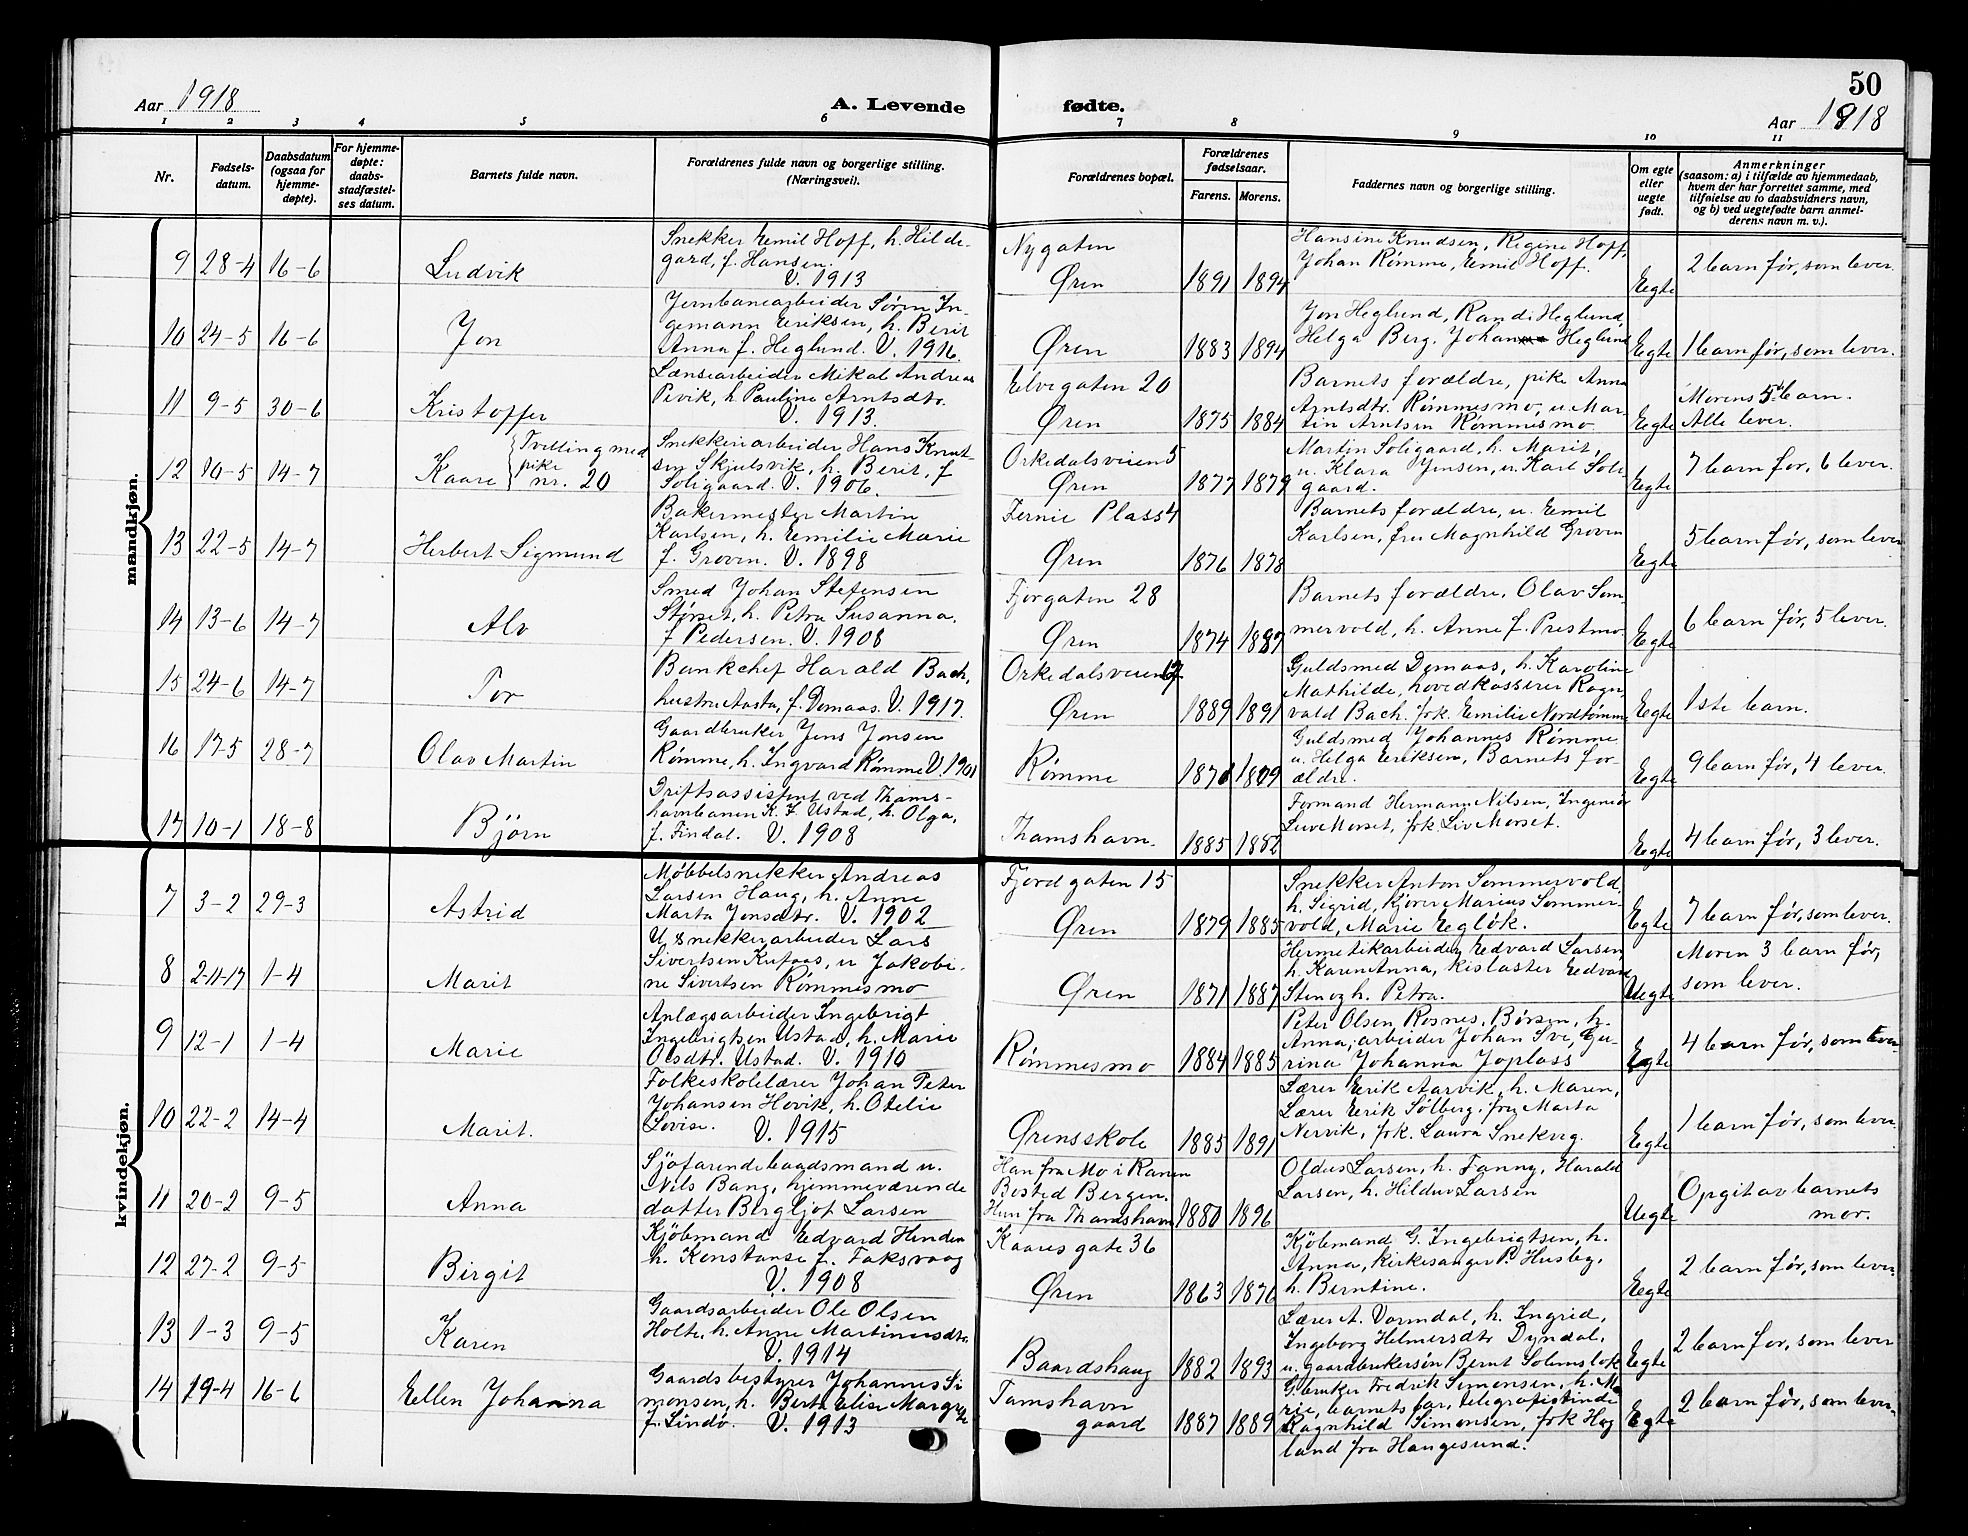 50
Aar 1918
A. Levende fødte.
Aar 1918
1 2 3 4 5 6 7 8 9 10 11
Nr.
Fødsels-
datum.
Daabsdatum
(ogsaa for
hjemme-
døpte).
For hjemme-
døpte:
daabs-
stadfæstel-
ses datum.
Barnets fulde navn.
Forældrenes fulde navn og borgerlige stilling.
(Næringsvei).
Forældrenes bopæl.
Forældrenes
fødselsaar.
Farens. Morens.
Faddernes navn og borgerlige stilling.
Om egte
eller
uegte
født.
Anmerkninger
(saasom: a) i tilfælde av hjemmedaab,
hvem der har forrettet samme, med
tilføielse av to daabsvidners navn,
og b) ved uegtefødte barn anmel-
derens navn m. v.).
mandkjøn.
9 28-4 16-6
Ludvik
Snekker Emil Hoff, h. Hilde-
gard, f. Hansen.
V. 1913
Nygaten
Øren
1891 1894
Hansine Knudsen, Regine Hoff,
Johan Rømme, Emil Hoff.
Egte
2 barn før, som lever.
10 24-5 16-6
Jon
Jernbanearbeider Søren In-
gemann Eriksen, h. Berit
Anna f. Heglund. V. 1916.
Øren
1883 1894
Jon Heglund, Randi Heglund,
Helga Berg, Johan Heglund
Egte
1 barn før, som lever.
11 9-5 30-6
Kristoffer
Lænsearbeider Mikal Andreas
Pevik, h. Pauline Arntsdtr.
V. 1913.
Elvegaten 20
Øren
1875 1884
Barnets forældre, pike Anna
Arntsdtr. Rømmesmo, u. Mar-
tin Arntsen Rømmesmo
Egte
Morens 5te barn.
Alle lever.
12 10-5 14-7
Kaare
Tvilling med
pike
nr. 20
Snekkerarbeider Hans Knut-
sen Skjulsvik, h. Berit, f
Soligaard. V. 1906.
Orkedalsveien 5
Øren
1877 1879
Martin Soligaard, h. Marit,
u. Klara Jensen, u. Karl Soli-
gaard.
Egte
7 barn før, 6 lever.
13 22-5 14-7
Herbert Sigmund
Bakermester Martin
Karlsen, h. Emilie Marie
f. Grovn. V. 1898
Fernie Plass 4
Øren
1876 1878
Barnets forældre, u. Emil
Karlsen, fru Magnhild Grovn
Egte
5 barn før, som lever
14 13-6 14-7
Alv
Smed Johan Stefensen
Størset, h. Petra Susanna,
f Pedersen. V. 1908
Fjorgaten 28
Øren
1874 1887
Barnets forældre, Olav Som-
mervold, h. Anne f. Prestmo.
Egte
6 barn før, 5 lever.
15 24-6 14-7
Tor
Bankchef Harald Bach,
hustru Aasta, f. Domaas. V. 1917.
Orkedalsveien
Øren
1889 1891
Guldsmed Domaas, h. Karoline
Mathilde, hovedkasserer Ragn-
vald Bach, frk. Emilie Nordtømme
Egte
1ste barn.
16 17-5 28-7
Olav Martin
Gaardbruker Jens Jonsen
Rømme, h. Ingvard Rømme V. 1901
Rømme
Guldsmed Johannes Rømme
u. Helga Eriksen, Barnets for-
ældre.
Egte
9 barn før, 4 lever.
17 10-1 18-8
Bjørn
Driftsassistent ved Thams-
havnbanen K. F. Ustad, h. Olga,
f. Findal. V. 1908
Thamshavn.
1885 1882
Formand Hermann Nilsen, Ingeniør
Leiv Morset, frk. Liv Morset.
Egte
4 barn før, 3 lever.
kvindekjøn.
7 3-2 29-3
Astrid
Møbbelsnekker Andreas
Larsen Haug, h. Anne
Marta Jonsdtr. V. 1902
Fjordgaten 15
Øren
1879 1885
Snekker Anton Sommervold,
h. Sigrid, kjører Marius Sommer-
vold, Marie Egløk.
Egte
7 barn før, som lever.
8 2-11-17 1-4
Marit
U. snekkerarbeider Lars
Sivertsen Kufaas, u Jakobi-
ne Sivertsen Rømmesmo
Øren
1871 1887
Hermetikarbeider Edvard Larsen,
h. Karen Anna, kislaster Edvard
Sten og h. Petra.
Uegte
Moren 3 barn før,
som lever.
9 12-1 1-4
Marie
Anlægsarbeider Ingebrigt
Ingebrigtsen Ustad, h. Marie
Olsdtr. Ustad. V. 1910
Rømmesmo
1884 1885
Peter Olsen Rosnes, Børsen, h.
Anna, arbeider Johan Sve, Gu-
rina Johanna Joplass
Egte
4 barn før, som lever
10 22-2 14-4
Marit.
Folkeskolelærer Johan Peter
Johansen Hovik, h. Otelie
Lovise. V. 1915
Ørensskole
1885 1891
Lærer Erik Aarvik, h. Maren,
Lærer Erik Sølberg, fru Marta
Nervik, frk. Laura Snekvig.
Egte
1 barn før, som lever.
11 20-2 9-5
Anna
Sjöfarende baadsmand u.
Nils Bang, hjemmeværende
datter Bergljot Larsen
Han fra Mo i Ranen
Bosted Bergen.
Hun fra Thamshavn
1880 1896
Oldus Larsen, h. Fanny, Harald
Larsen, h. Hildur Larsen
Uegte
Opgit av barnets
mor.
12 27-2 9-5
Birgit
Kjöbmand Edvard Hinden
h. Konstanse f. Faksvaag
V. 1908
Kaares gate 36
Øren
1863 1876
Kjöbmand G. Ingebrigtsen, h.
Anna, kirkesanger P. Husby,
h. Berntine.
Egte
2 barn før, som lever.
13 1-3 9-5
Karen
Gaardsarbeider Ole Olsen
Holte, h. Anne Martinusdtr.
V. 1914
Baardshaug
1882 1893
Lærer A. Vormdal, h. Ingrid,
Ingeborg Helmersdtr Dyndal,
u. gaardbrukersøn Bernt Solemslok
Egte
2 barn før, som lever
14 19-4 16-6
Ellen Johanna
Gaardsbestyrer Johannes Si
monsen, h. Berta Elise Margrete
f. Lindö. V. 1913
Tamshavn
gaard
1887 1889
G.bruker Fredrik Simonsen, h. Ma
rie, barnets far, telegrafistinde
Ragnhild Simonsen, frk Hog
land fra Haugesund.
Egte
2 barn før, som lever.